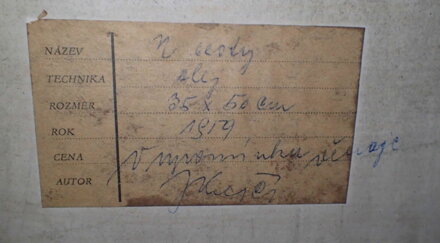 NÁZEV U cesty
TECHNIKA olej
ROZMĚR 35 x 50 cm
ROK 1919
CENA V upomínku věnuje
AUTOR